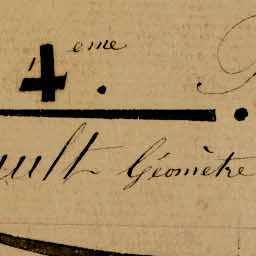 4eme.
ault Géomètre